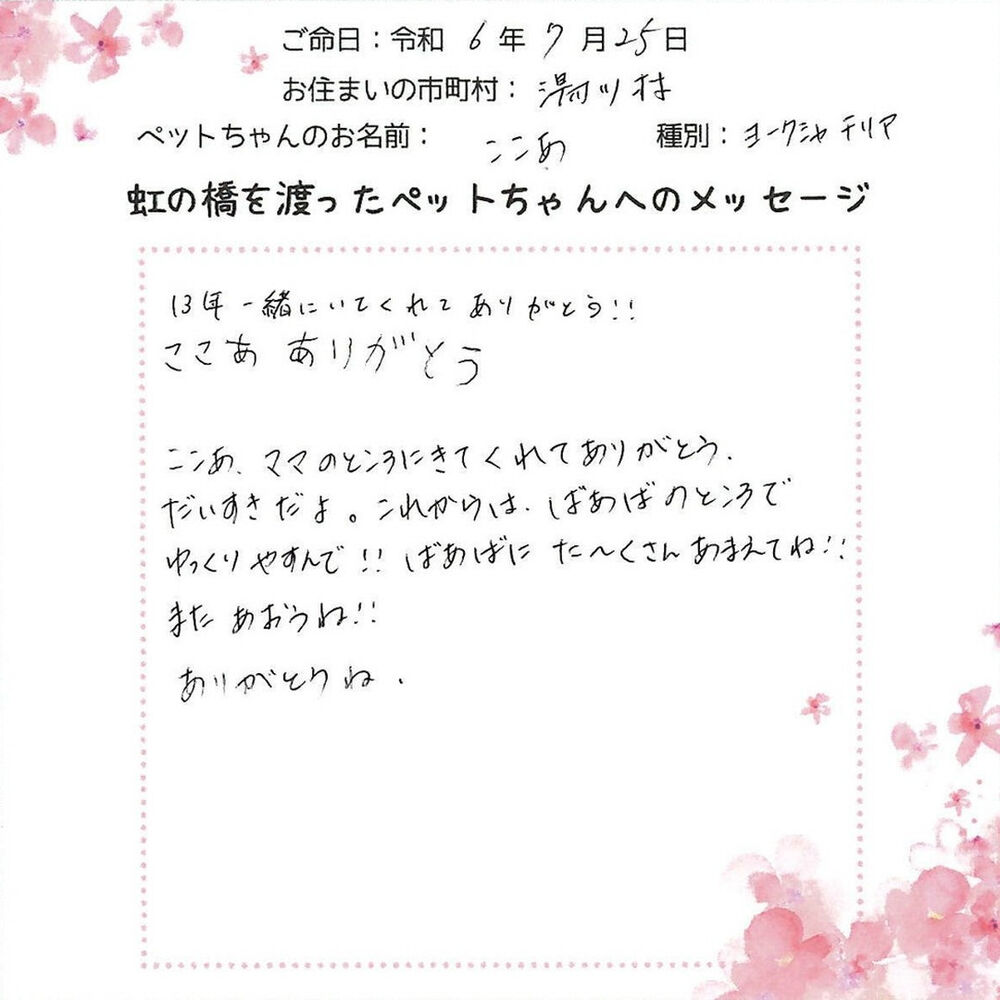 ご命日：令和 6年 7月25日
お住まいの市町村： 湯川村
ペットちゃんのお名前： ここあ 種別：ヨークシャテリア
虹の橋を渡ったペットちゃんへのメッセージ
13年一緒にいてくれてありがとう!!
ここあ ありがとう
ここあ、ママのところにきてくれてありがとう、
だいすきだよ。これからは、ばあばのところで
ゆっくりやすんで!! ばあばに た〜くさんあまえてね!!
また あおうね!!
ありがとうね、